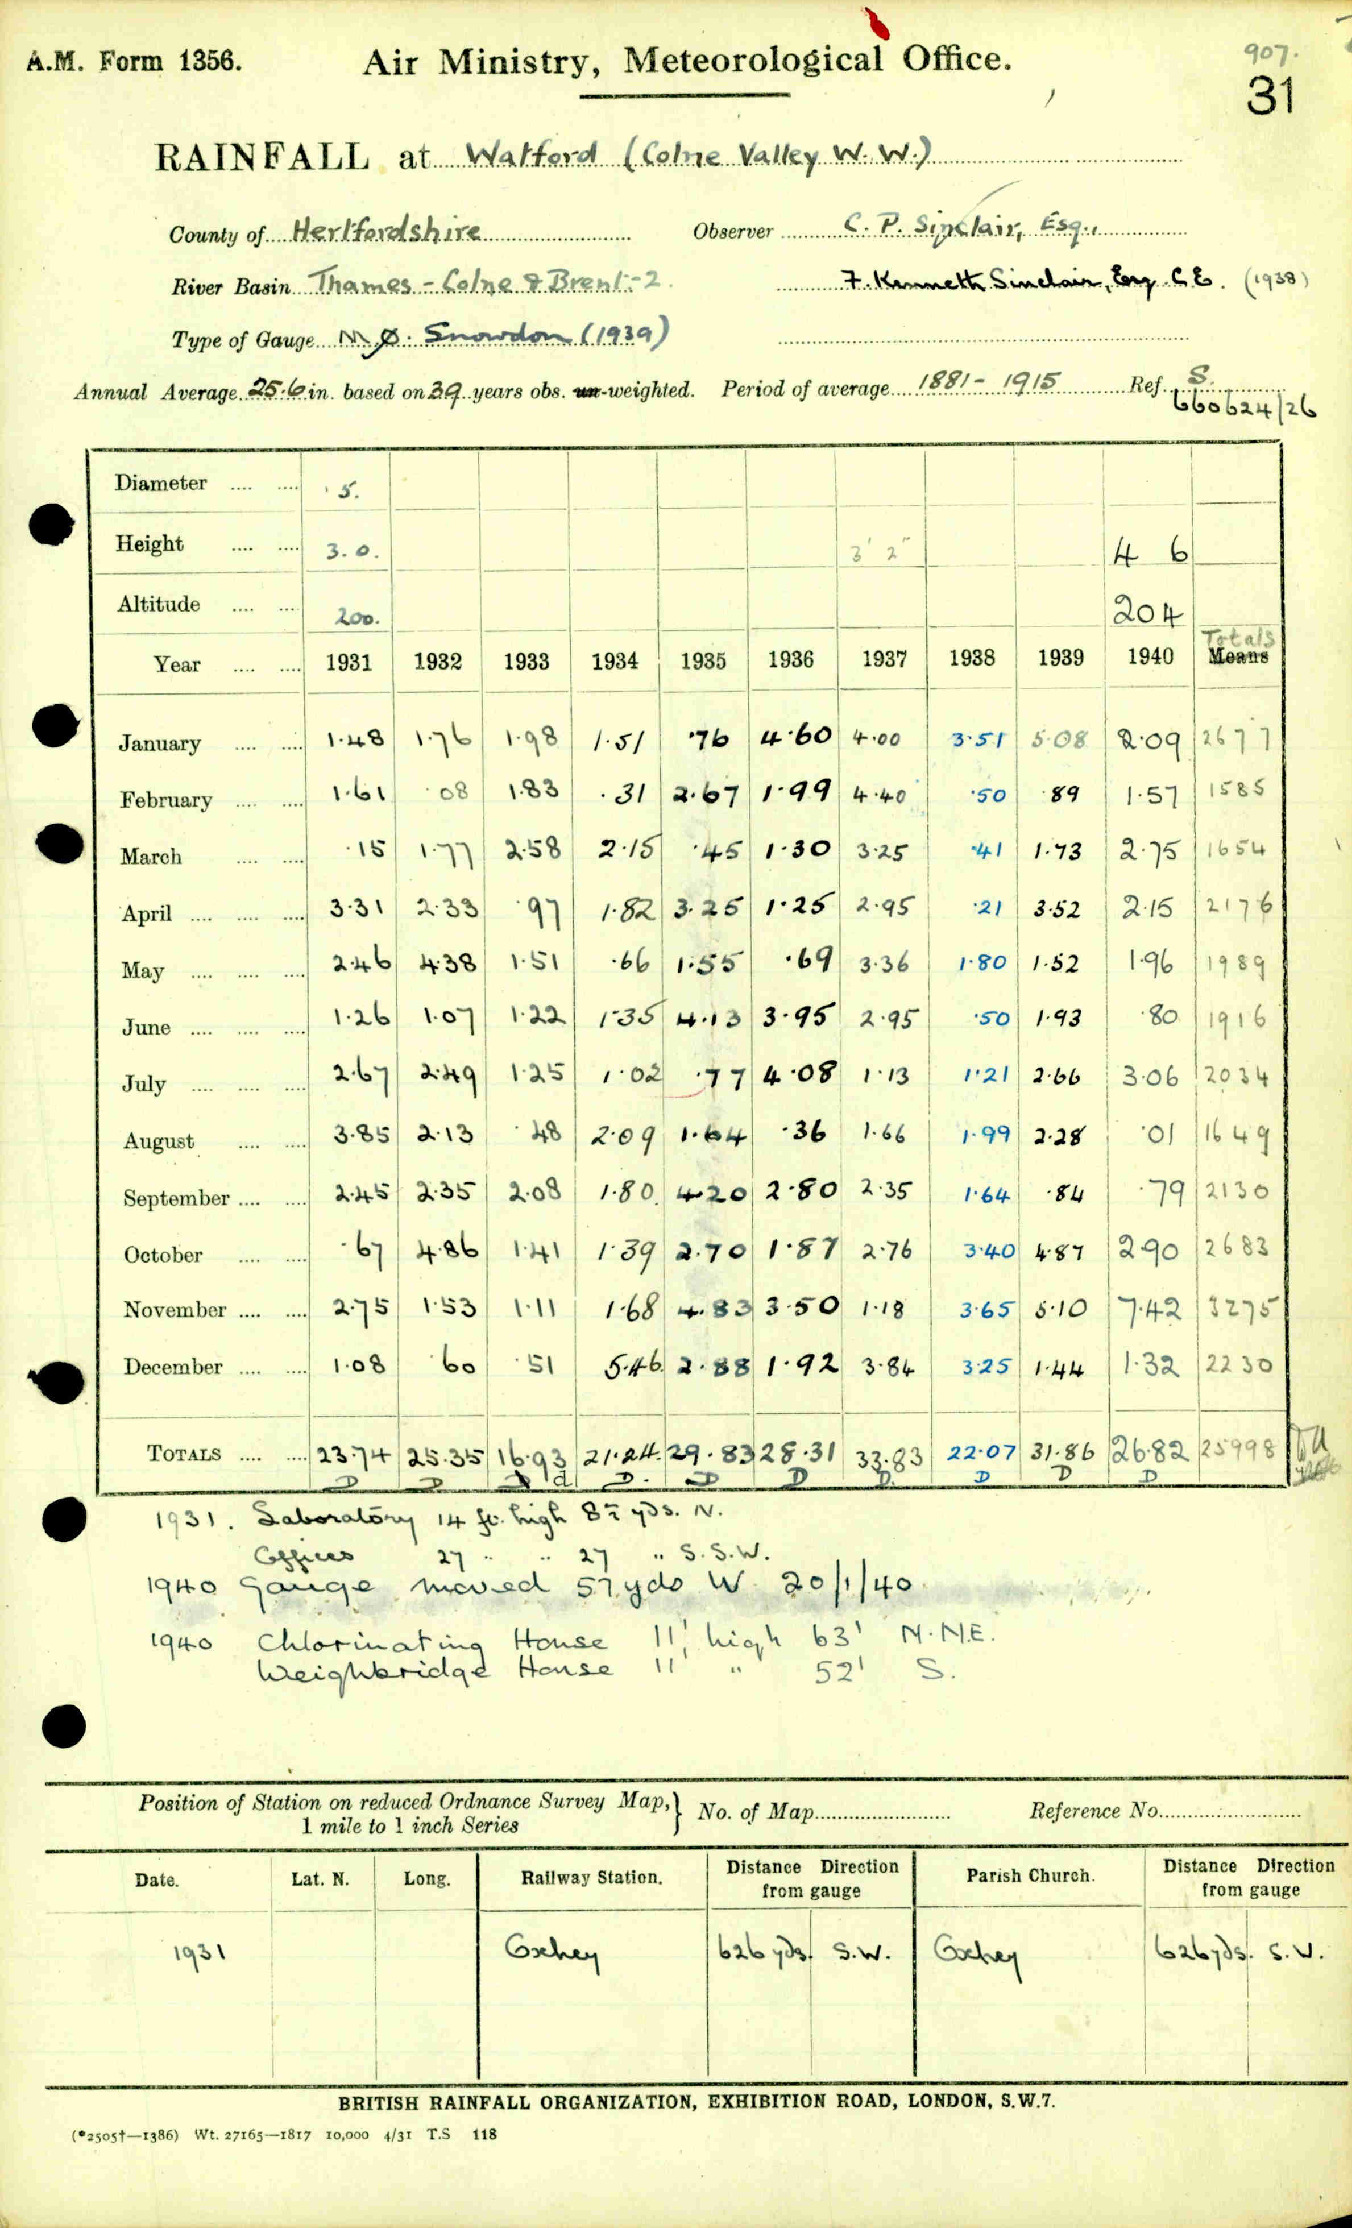 907.
A.M. Form 1356. Air Ministry, Meteorological Office. 31
RAINFALL at Watford (Colne Valley W.W.)
County of Hertfordshire Observer C. P. Sinclair, Esq.,
River Basin Thames - Colne & Brent:-2 F. Kenneth Sinclair, Esq. C.E. (1938)
Type of Gauge M.O. Snowdon (1939)
Annual Average 25.6 in. based on 39 years obs. un-weighted. Period of average 1881 - 1915 Ref. S.
660624/26
Diameter .... .... 5.
Height .... .... 3. 0. 3' 2" 4 6
Altitude .... .... 200. 204
Totals
Year .... .... 1931 1932 1933 1934 1935 1936 1937 1938 1939 1940 Means
January .... .... 1.48 1.76 1.98 1.51 .76 4.60 4.00 3.51 5.08 2.09 2677
February .... .... 1.61 .08 1.83 .31 2.67 1.99 4.40 .50 .89 1.57 1585
March .... .... .15 1.77 2.58 2.15 .45 1.30 3.25 .41 1.73 2.75 1654
April .... .... .... 3.31 2.33 .97 1.82 3.25 1.25 2.95 .21 3.52 2.15 2176
May .... .... .... 2.46 4.38 1.51 .66 1.55 .69 3.36 1.80 1.52 1.96 1989
June .... .... .... 1.26 1.07 1.22 1.35 4.13 3.95 2.95 .50 1.93 .80 1916
July .... .... .... 2.67 2.49 1.25 1.02 .77 4.08 1.13 1.21 2.66 3.06 2034
August .... .... 3.85 2.13 .48 2.09 1.64 .36 1.66 1.99 2.28 .01 1649
September .... .... 2.45 2.35 2.08 1.80 4.20 2.80 2.35 1.64 .84 .79 2130
October .... .... .67 4.86 1.41 1.39 2.70 1.87 2.76 3.40 4.87 2.90 2683
November .... .... 2.75 1.53 1.11 1.68 4.83 3.50 1.18 3.65 5.10 7.42 3275
December .... .... 1.08 .60 .51 5.46 2.88 1.92 3.84 3.25 1.44 1.32 2230
TOTALS .... .... 23.74 25.35 16.93 21.24 29.83 28.31 33.83 22.07 31.86 26.82 25998
D D D d D. D D D. D D D
1931. Laboratory 14 ft. high 8½ yds. N.
Offices 27 " " 27 " S.S.W.
1940 Gauge moved 57 yds W 20/1/40
1940 Chlorinating House 11' high 63' N.N.E.
Weighbridge House 11' " 52' S.
Position of Station on reduced Ordnance Survey Map,} No. of Map Reference No.
1 mile to 1 inch Series
Date. Lat. N. Long. Railway Station. Distance Direction from gauge Parish Church. Distance Direction from gauge
1931 Oxhey 626 yds. S.W. Oxhey 626 yds. S.W.
BRITISH RAINFALL ORGANIZATION, EXHIBITION ROAD, LONDON, S.W.7.
(*2505†—1386) Wt. 27165—1817 10,000 4/31 T.S 118